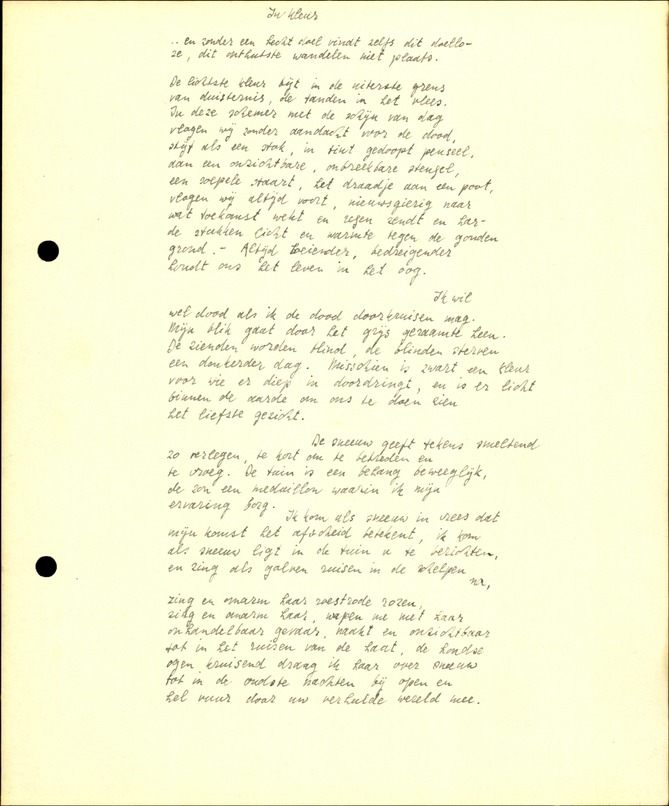 In kleur
.. en zonder een licht doel vindt zelfs dit doello-
ze, dit onthutste wandelen niet plaats.
De lichtste kleur bijt in de uiterste grens
van duisternis, de tanden in het vlees.
In deze schemer met de schijn van dag
vlogen wij zonder aandacht voor de dood,
stijf als een stok, in tint gedoopt penseel,
aan een onzichtbare, onbreekbare stengel,
een soepele staart, het draadje aan een poot,
vlogen wij altijd voort, nieuwsgierig naar
wat toekomst wekt en regen zendt en har-
de stukken licht en warmte tegen de gouden
grond. – Altijd boeiender, bedreigender
houdt ons het leven in het oog.
Ik wil
wel dood als ik de dood doorkruisen mag.
Mijn blik gaat door het grijs geraamte heen.
De zienden worden blind, de blinden sterven
een donkerder dag. Misschien is zwart een kleur
voor wie er diep in doordringt, en is er licht
binnen de aarde om ons te doen zien
het liefste gezicht.
De sneeuw geeft tekens smeltend
zo verlegen, te kort om te betreden en
te vroeg. De tuin is een belang beweeglijk,
de zon een medaillon waarin ik mijn
ervaring borg.
Ik kom als sneeuw in vrees dat
mijn komst het afscheid betekent, ik kom
als sneeuw ligt in de tuin u te berichten,
en zing als golven ruisen in de schelpen
na,
zing en omarm haar roestrode rozen,
zing en omarm haar, wapen me met haar
onhandelbaar gevaar, naakt en onzichtbaar
tot in het ruisen van de haat, de hondse
ogen kruisend draag ik haar over sneeuw
tot in de oudste nachten bij open en
hel vuur door uw verhulde wereld mee.